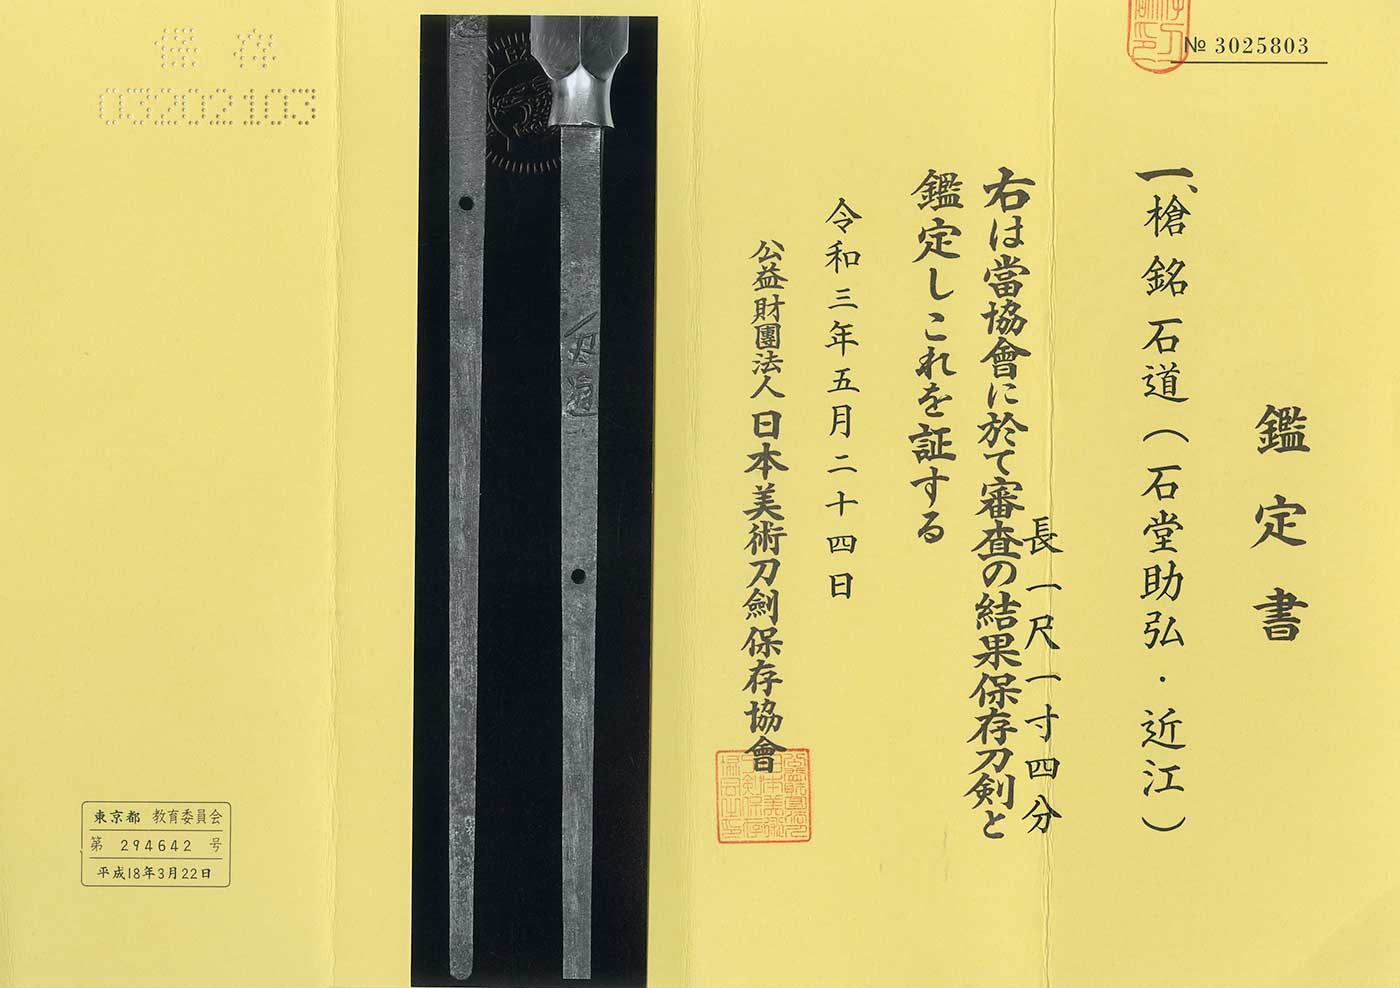 № 3025803
鑑定書
一、槍 銘 石道(石堂助弘・近江)
長一尺一寸四分
右は當協會に於て審査の結果保存刀剣と
鑑定しこれを証する
令和三年五月二十四日
公益財團法人 日本美術刀劍保存協會
保存
03202103
東京都 教育委員会
第 294642 号
平成18年3月22日